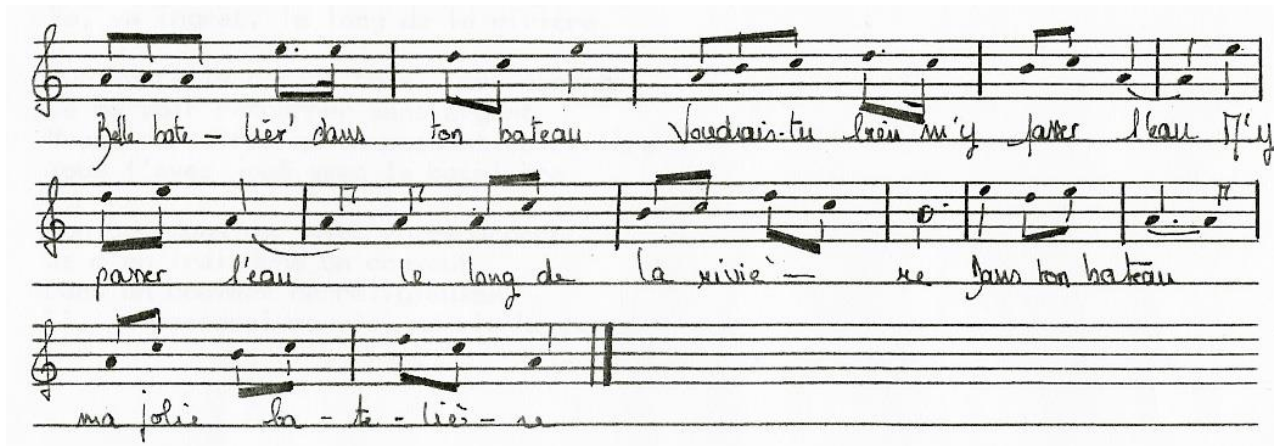 Belle bate-lier' dans ton bateau Voudrais-tu bien m'y passer l'eau M'y
passer l'eau le long de la riviè-re Dans ton bateau
ma jolie ba-te-liè-re